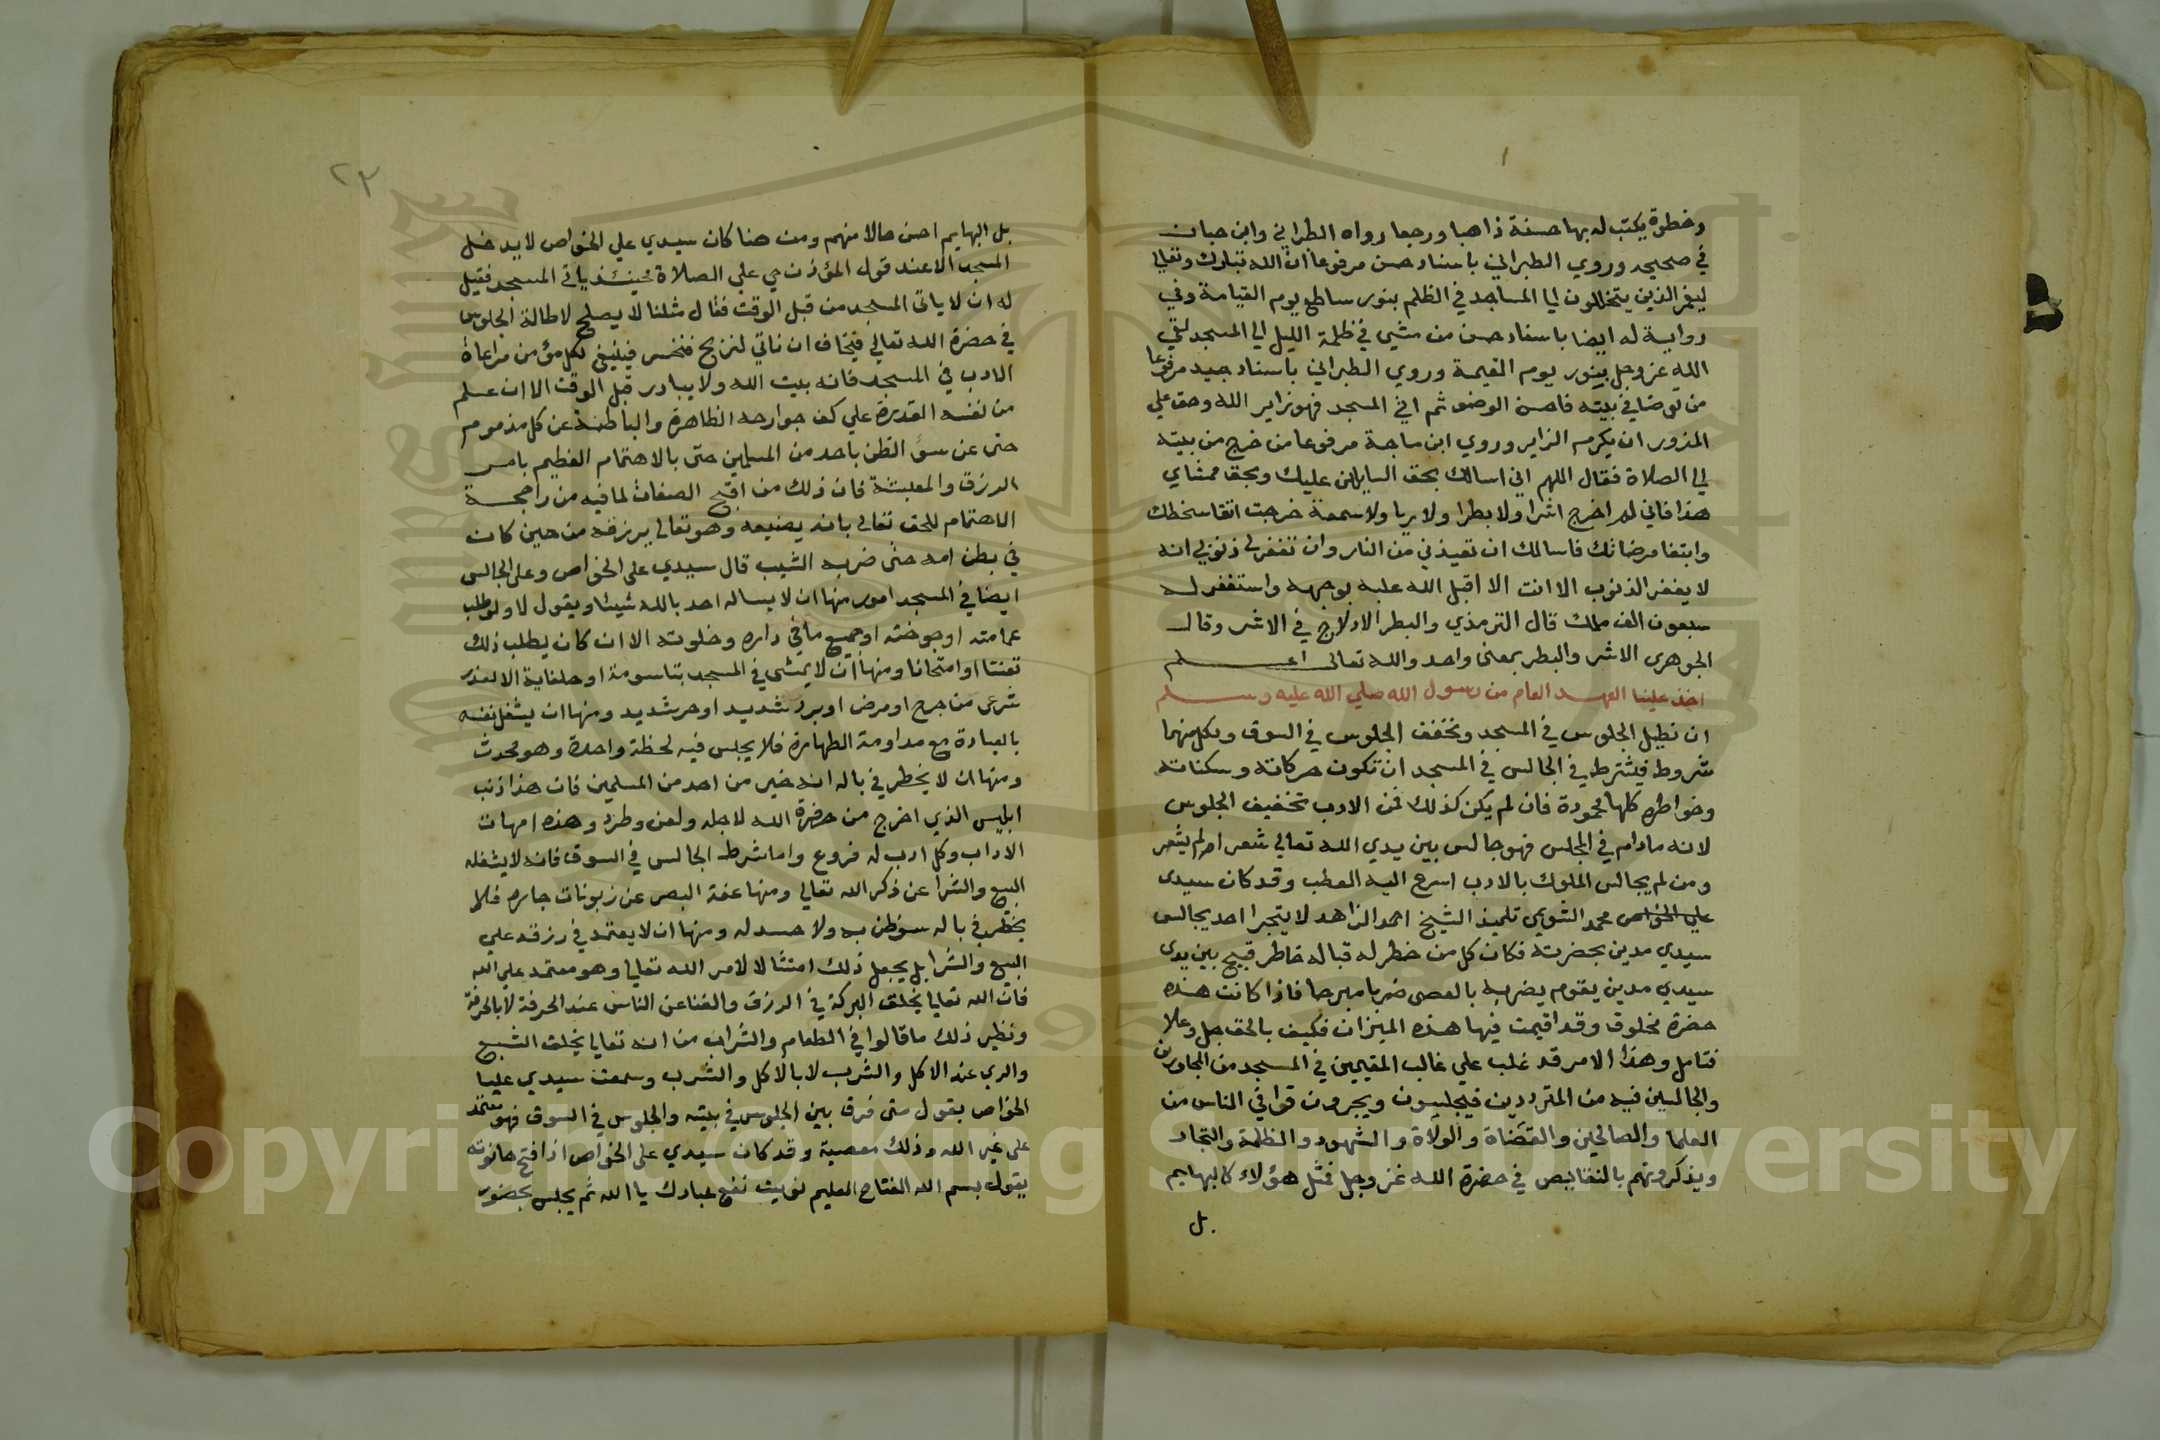 وخطوة يكتب له بها حسنة ذاهبا ورجعا رواه الطبراني وابن حبان
في صحيحه وروي الطبراني باسناد حسن مرفوعا ان الله تبارك وتعالي
ليغمر الذين يتخللون الي المساجد في الظلم بنور ساطع يوم القيامة وفي
رواية له ايضا باسناد حسن من مشي في ظلمة الليل الي المسجد لقي
الله عز وجل بنور يوم القيمة وروي الطبراني باسناد جيد مرفوعا
من توضا في بيته فاحسن الوضو ثم اتي المسجد فهو زاير الله وحق علي
المزور ان يكرم الزاير وروي ابن ماجة مرفوعا من خرج من بيته
الي الصلاة فقال اللهم اني اسالك بحق السايلين عليك وبحق ممشاي
هذا فاني لم اخرج اشرا ولا بطرا ولا ريا ولا سمعة خرجت اتقا سخطك
وابتغا مرضاتك فاسالك ان تعيذني من النار وان تغفر لي ذنوبي انه
لا يغفر الذنوب الا انت الا اقبل الله عليه بوجهه واستغفر له
سبعون الف ملك قال الترمذي والبطر الادلاج في الاشر وقال
الجوهري الاشر والبطر بمعني واحد والله تعالى اعلم
اخذ علينا العهد العام من رسول الله صلي الله عليه وسلم
ان نطيل الجلوس في المسجد ونخفف الجلوس في السوق ولكل منهما
شروط فيشترط في الجالس في المسجد ان تكون حركاته وسكناته
وخواطره كلها محمودة فان لم يكن كذلك فمن الادب تخفيف الجلوس
لانه مادام في المجلس فهو جالس بين يدي الله تعالي شعر ام لم يشعر
ومن لم يجالس الملوك بالادب اسرع اليه العطب وقد كان سيدى
علي الخواص محمد الشويمي تلميذ الشيخ احمد الزاهد لا يتجرا احد يجالس
سيدي مدين بحضرته فكان كل من خطر له قباله خاطر قبيح بين يدى
سيدي مدين يقوم يضربه بالعصى ضربا مبرحا فاذا كانت هذه
حضرة مخلوق وقد اقيمت فيها هذه الميزان فكيف بالحق جل وعلا
فتامل وهذا الامر قد غلب علي غالب المقيمين في المسجد من المجاورين
والجالسين فيه من المترددين فيجلسون ويجرون قوافي الناس من
العلما والصالحين والقضاة والولاة والشهود والظلمة والتجار
ويذكرونهم بالنقايص في حضرة الله عز وجل فمثل هؤلاء كالبهايم
بل
٢٣
بل البهايم احسن حالا منهم ومن هنا كان سيدي علي الخواص لا يدخل
المسجد الا عند قول المؤذن حي علي الصلاة فحينئذ ياتي المسجد فقيل
له ان لا ياتى المسجد من قبل الوقت فقال مثلنا لا يصلح لاطالة الجلوس
في حضرة الله تعالي فيخاف ان ناتي لنربح فنخسر فينبغي لكل مؤمن مراعاة
الادب في المسجد فانه بيت الله ولا يبادر قبل الوقت الا ان علم
من نفسه القدرة علي كف جوارحه الظاهرة والباطنة عن كل مذموم
حتى عن سؤ الظن باحد من المسلمين حتى بالاهتمام العظيم بامر
الرزق والمعيشة فان ذلك من اقبح الصفات لما فيه من رائحة
الاهتمام للحق تعالى بانه يضيعه وهو تعالى يرزقه من حين كان
في بطن امه حتى ضربه الشيب قال سيدي على الخواص وعلى الجالس
ايضا في المسجد امور منها ان لا يساله احد بالله شيئا ويقول لا ولو طلب
عمامته او جوخته او جميع ما في داره وخلوته الا ان كان يطلب ذلك
تعنتا او امتحانا ومنها ان لا يمشي في المسجد بتاسومة او حلفاية الا لعذر
شرعى من جرح او مرض او برد شديد او حر شديد ومنها ان يشغل نفسه
بالعبادة مع مداومة الطهارة فلا يجلس فيه لحظة واحدة وهو محدث
ومنها ان لا يخطر في باله انه خير من احد من المسلمين فان هذا ذنب
ابليس الذي اخرج من حضرة الله لاجله ولعن وطرد وهذه امهات
الاداب وكل ادب له فروع واما شرط الجالس في السوق فانه لا يشغله
البيع والشرا عن ذكر الله تعالي ومنها عفة البصر عن زبونات جاره فلا
يخطر في باله سؤ ظن به ولا حسد له ومنها ان لا يعتمد في رزقه علي
البيع والشرا بل يجعل ذلك امتثالا لامر الله تعالي وهو معتمد علي الله
فان الله تعالي يخلق البركة في الرزق والغنا عن الناس عند الحرفة لا بالحرفة
ونظير ذلك ما قالوا في الطعام والشراب من انه تعالي يخلق الشبع
والري عند الاكل والشرب لا بالاكل والشرب وسمعت سيدي عليا
الخواص يقول متى فرق بين الجلوس في بيته والجلوس في السوق فهو معتمد
على غير الله وذلك معصية وقد كان سيدي على الخواص اذا فتح حانوته
يقول بسم الله الفتاح العليم نويت نفع عبادك يا الله ثم يجلس بحضور
Copyright © King Saud University